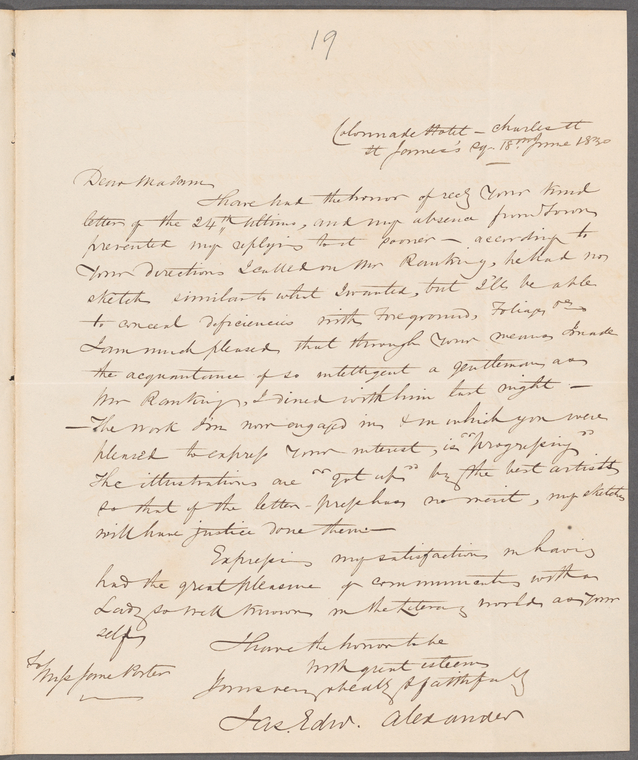 19
Colonnade Hotel – Charles St
St James's Sq – 18th June 1830
Dear Madam
I have had the honor of recg Your kind
letter of the 24th Ultimo, and my absence from Town
prevented my replying to it sooner – according to
Your directions I called on Mr Ranking, he had no
sketch similar to what I wanted, but I'll be able
to conceal deficiencies with Foreground, Foliage &c
I am much pleased that through Your means I made
the acquantance of so intelligent a gentleman as
Mr Ranking, I dined with him last night –
– The work I'm now engaged in & in which you were
pleased to express Your interest, is "progressing"
The illustrations are "got up" by the best artists
so that if the letter-press has no merit, my sketches
will have justice done them –
Expressing my satisfaction in having
had the great pleasure of communicating with a
Lady so well known in the Literary world as Your
self,
I have the honor to be
With great esteem
Yours very & faithfully
Jas. Edw. Alexander
To
Miss Jane Porter